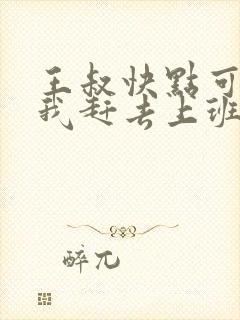 王叔快點可
我赶去上班
醉兀